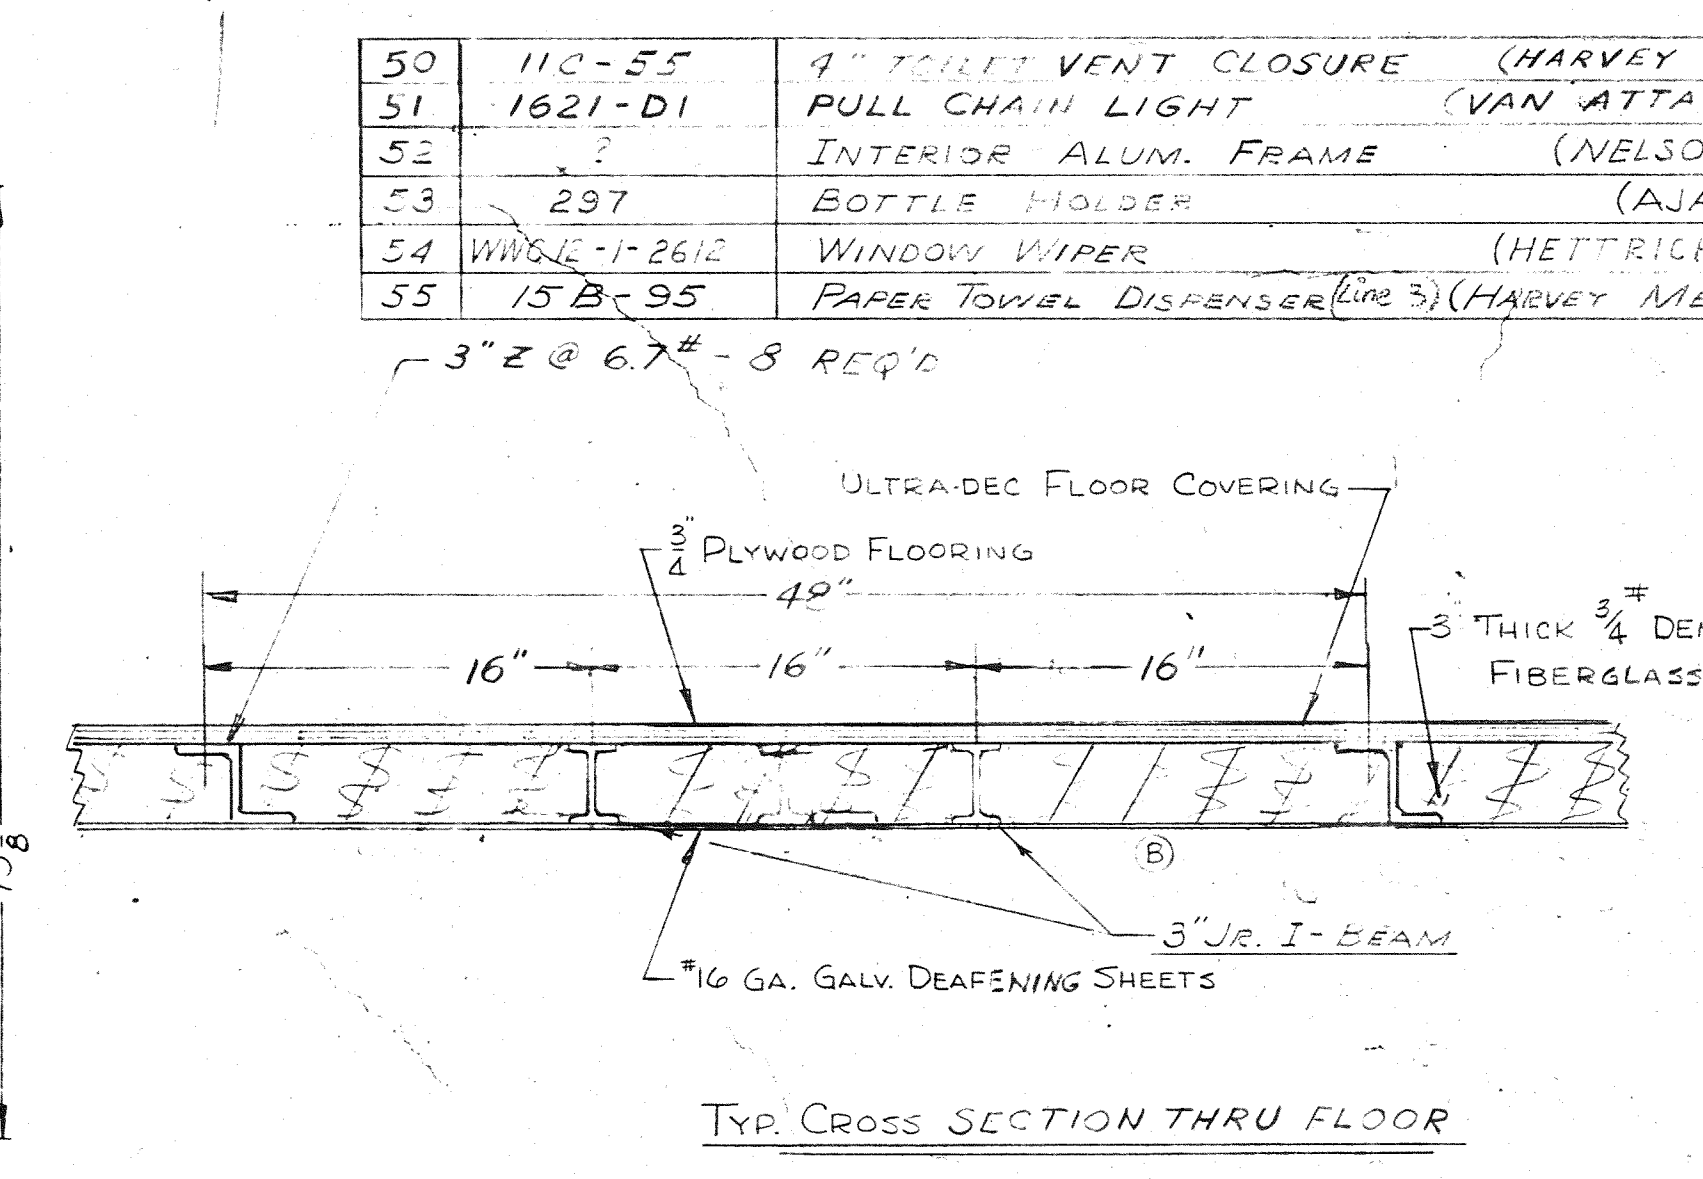 50 11C-55 4" TOILET VENT CLOSURE (HARVEY
51 1621-D1 PULL CHAIN LIGHT (VAN ATTA
52 ? INTERIOR ALUM. FRAME (NELSO
53 297 BOTTLE HOLDER (AJA
54 -1-2612 WINDOW WIPER (HETTRICH
55 15B-95 PAPER TOWEL DISPENSER (Line 3) (HARVEY ME
3" Z @ 6.7# - 8 REQ'D
ULTRA-DEC FLOOR COVERING
3/4" PLYWOOD FLOORING
48"
3" THICK 3/4# DEN
16" 16" 16"
FIBERGLASS
B
8
3" JR. I-BEAM
#16 GA. GALV. DEAFENING SHEETS
TYP. CROSS SECTION THRU FLOOR